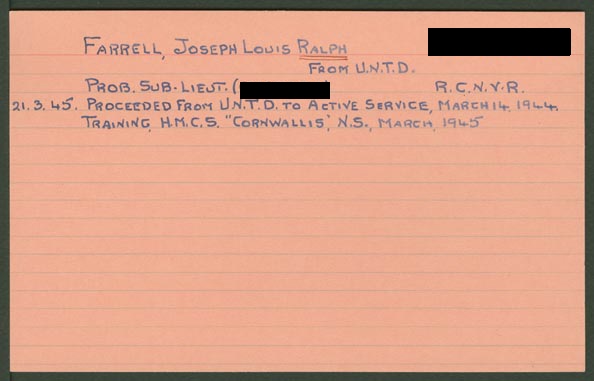 FARRELL, JOSEPH LOUIS RALPH
FROM U.N.T.D.
PROB. SUB-LIEUT. ( R.C.N.V.R.
21.3.45. PROCEEDED FROM U.N.T.D. TO ACTIVE SERVICE, MARCH 14, 1944.
TRAINING, H.M.C.S. "CORNWALLIS", N.S., MARCH, 1945